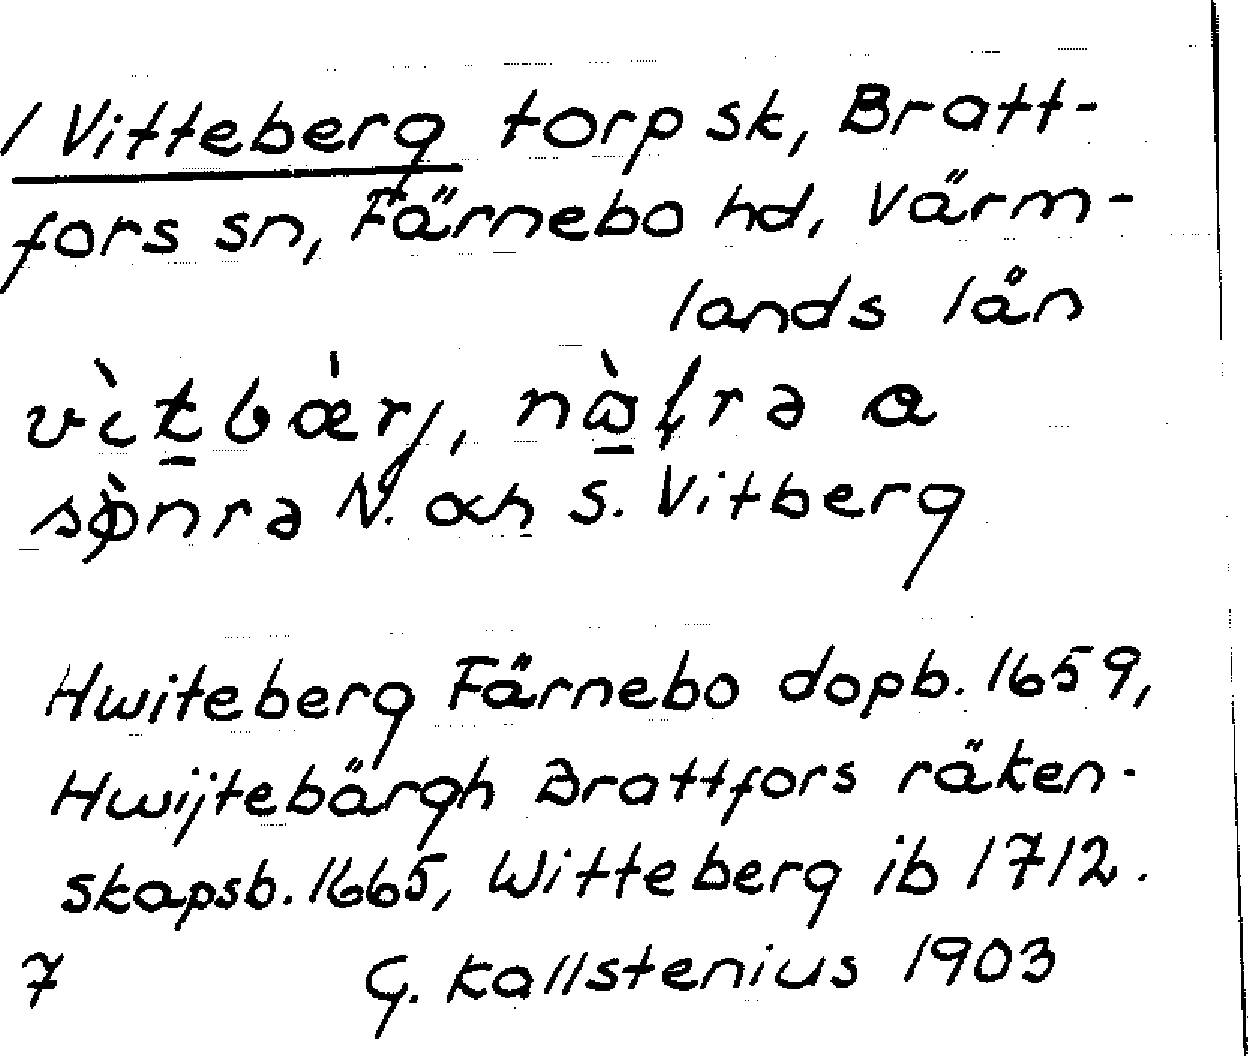 1 Vitteberg torp sk, Bratt-
fors sn, Färnebo hd, Värm-
lands län
vìt̠bæ̀rj, nɷ̠̀ḷrə a
sø̀nrə N. och S. Vitberg
Hwiteberg Färnebo dopb. 1659,
Hwijtebärgh Brattfors räken-
skapsb. 1665, Witteberg ib 1712.
7 G. Kallstenius 1903